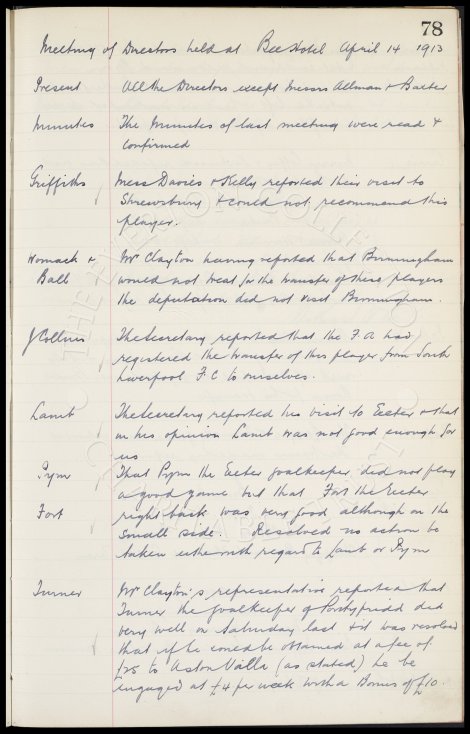 78
Meeting of Directors held at Bee Hotel April 14 1913
Present All the Directors except Messrs Allman & Baxter
Minutes The Minutes of last meeting were read &
confirmed
Griffiths Mess Davies & Kelly reported their visit to
Shrewsbury & could not recommend this
player.
Womack & Mr Clayton having reported that Birmingham
Ball would not treat for the transfer of these players
the deputation did not visit Birmingham.
J Collins The Secretary reported that the F.A had
registered the transfer of this player from South
Liverpool F.C to ourselves.
Lamb The Secretary reported his visit to Exeter & that
in his opinion Lamb was not good enough for
us
Pym That Pym the Exeter goalkeeper did not play
a good game but that Fort the Exeter
Fort right back was very good although on the
small side. Resolved no action be
taken with regard to Lamb or Pym
Turner Mr Clayton's representative reported that
Turner the goalkeeper of Pontypridd did
very well on Saturday last & it was resolved
that if he could be obtained at a fee of
£25 to Aston Villa (as stated) he be
engaged at £4 per week with a Bonus of £10.
THE EVERTON COLLECTION